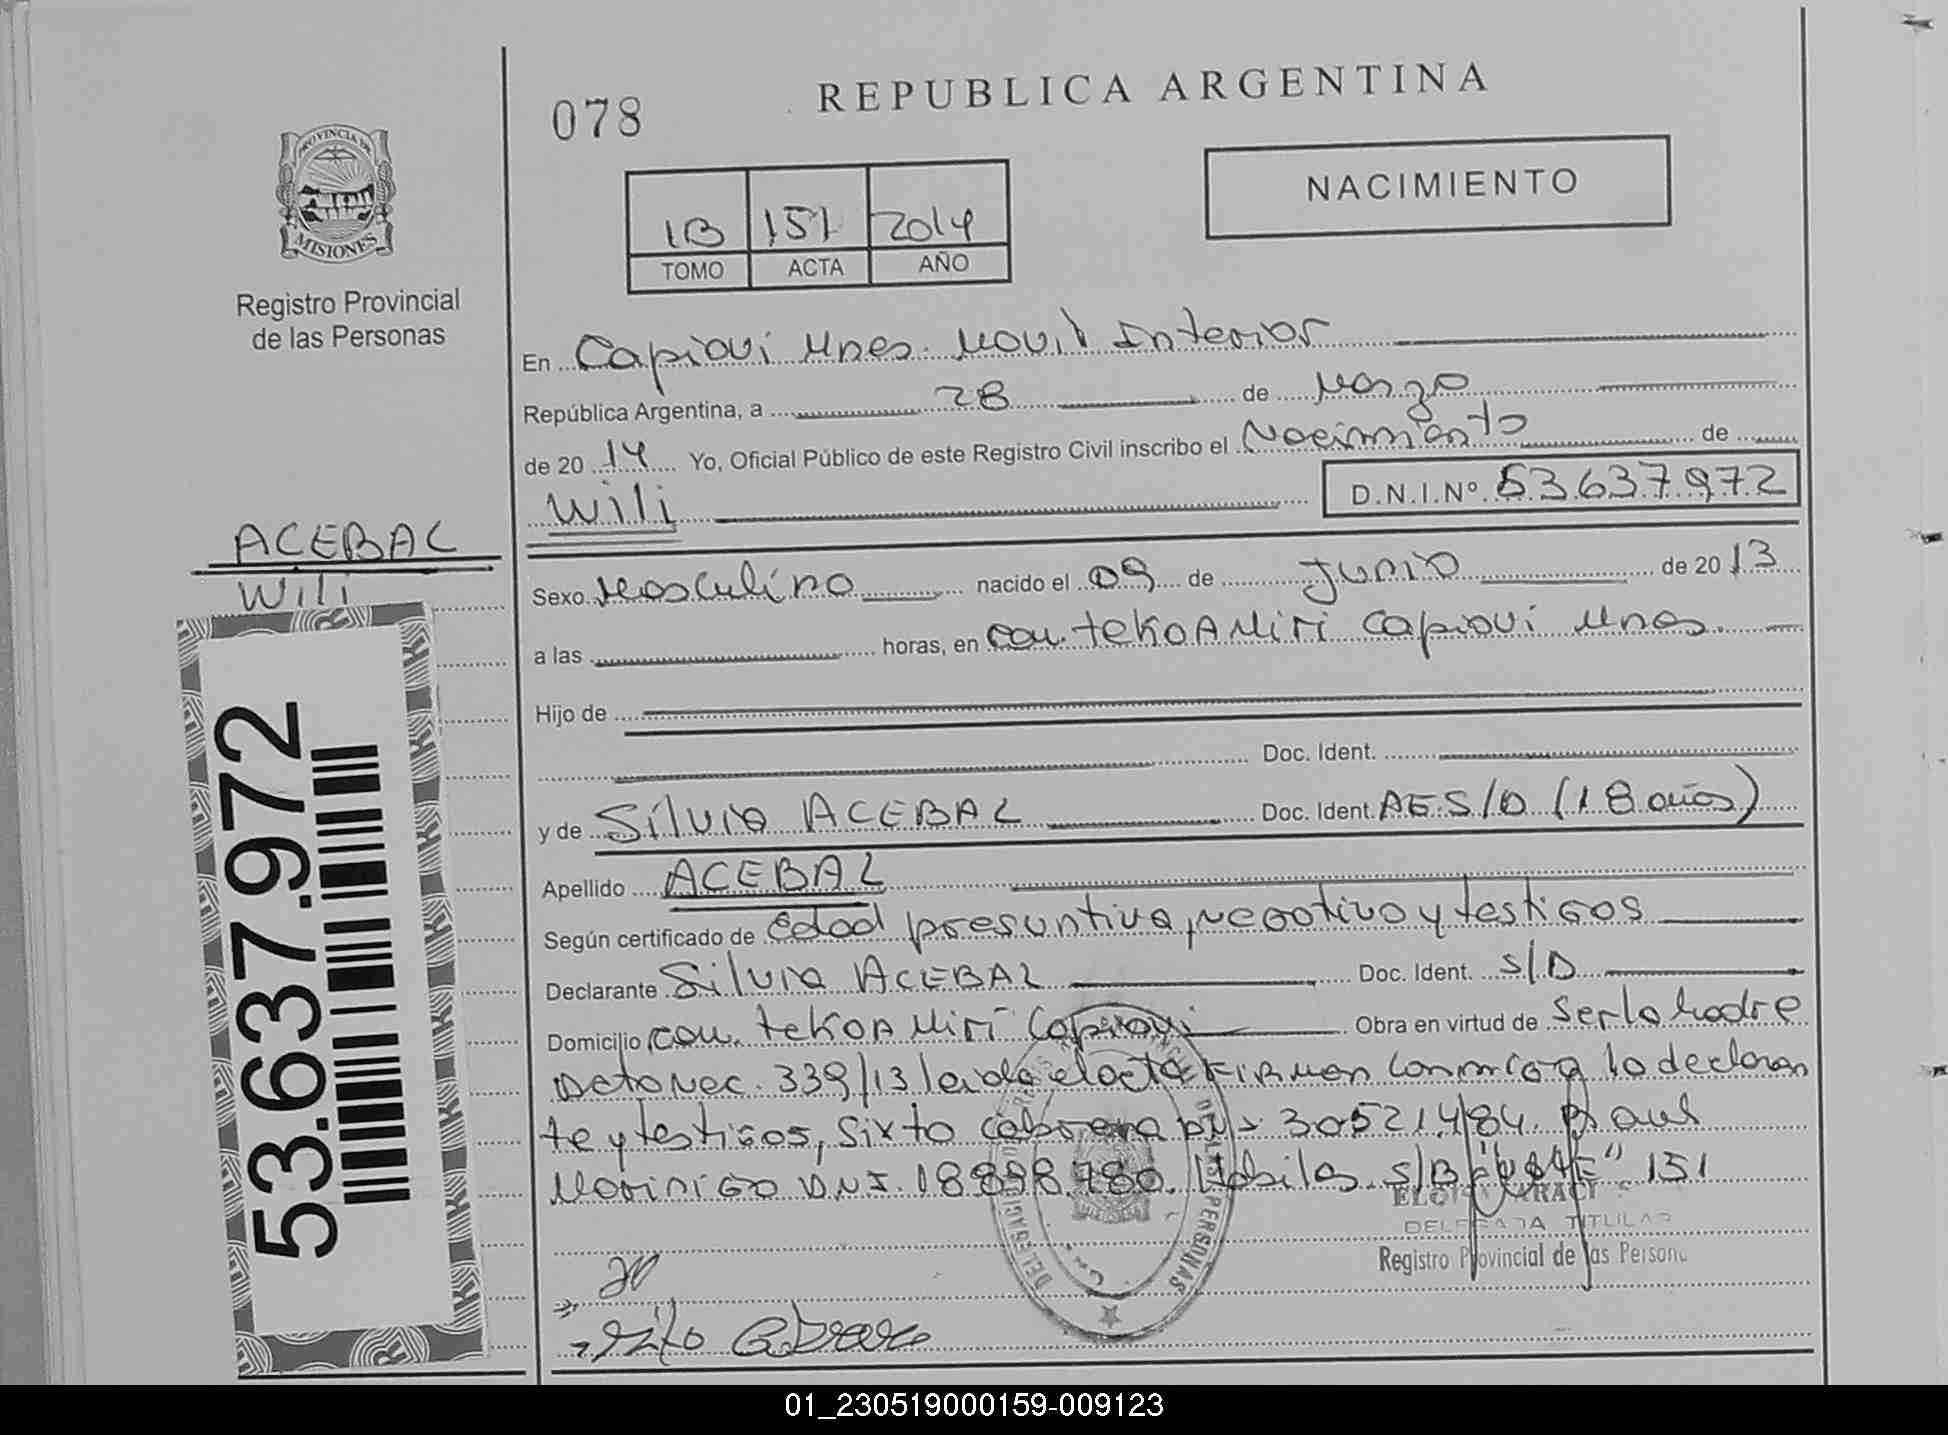 078
REPUBLICA ARGENTINA
NACIMIENTO
1B 151 2014
TOMO ACTA AÑO
PROVINCIA DE
MISIONES
Registro Provincial
de las Personas
En Capiovi Mnes. Movil Interior
República Argentina, a 28 de Marzo
de 20 14 Yo, Oficial Público de este Registro Civil inscribo el Nacimiento de
Wili D.N.I.Nº 53.637.972
ACEBAL
Wili
Sexo Masculino nacido el 09 de Junio de 20 13
a las horas, en com. tekoA Miri Capiovi Mnes.
Hijo de
Doc. Ident.
y de Silvia ACEBAL Doc. Ident. AE S/D (18 años)
Apellido ACEBAL
Según certificado de edad presuntiva, negativo y testigos
Declarante Silvia ACEBAL Doc. Ident. S/D
Domicilio com. tekoA Miri Capiovi Obra en virtud de Ser la Madre
Dcto Nec. 339/13 leida el acta FIRMAN conmigo la declaran
te y testigos, Sixto Cabrera DNI 30521484.
Morinigo D.N.I. 18.898.780. S/B "VALE" 151
DELEGADA TITULAR
Registro Provincial de las Persona
Sixto Cabrera
53.637.972
01_230519000159-009123